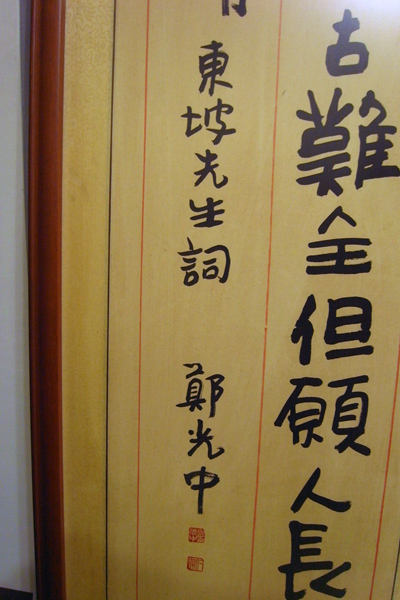 古難全但願人長
東坡先生詞 鄭光中